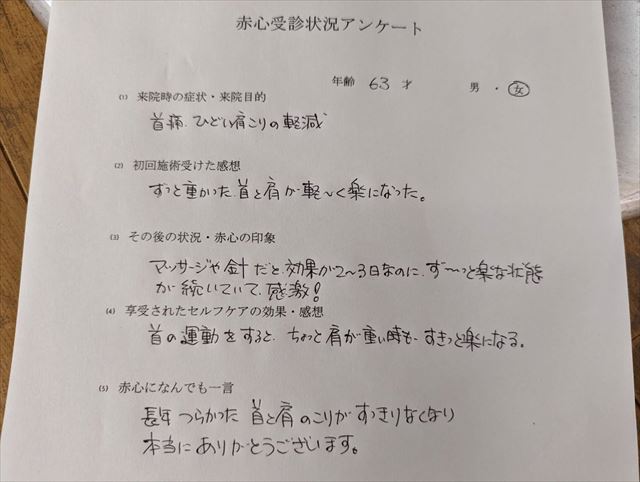 赤心受診状況アンケート
年齢 63 才 男 ・ 女
⑴ 来院時の症状・来院目的
首痛、ひどい肩こりの軽減
⑵ 初回施術受けた感想
ずっと重かった首と肩が軽~く楽になった。
⑶ その後の状況・赤心の印象
マッサージや針だと、効果が2~3日なのに、ず~っと楽な状態
が続いていて、感激!
⑷ 享受されたセルフケアの効果・感想
首の運動をすると、ちょっと肩が重い時も、すきっと楽になる。
⑸ 赤心になんでも一言
長年つらかった首と肩のこりがすっきりなくなり
本当にありがとうございます。